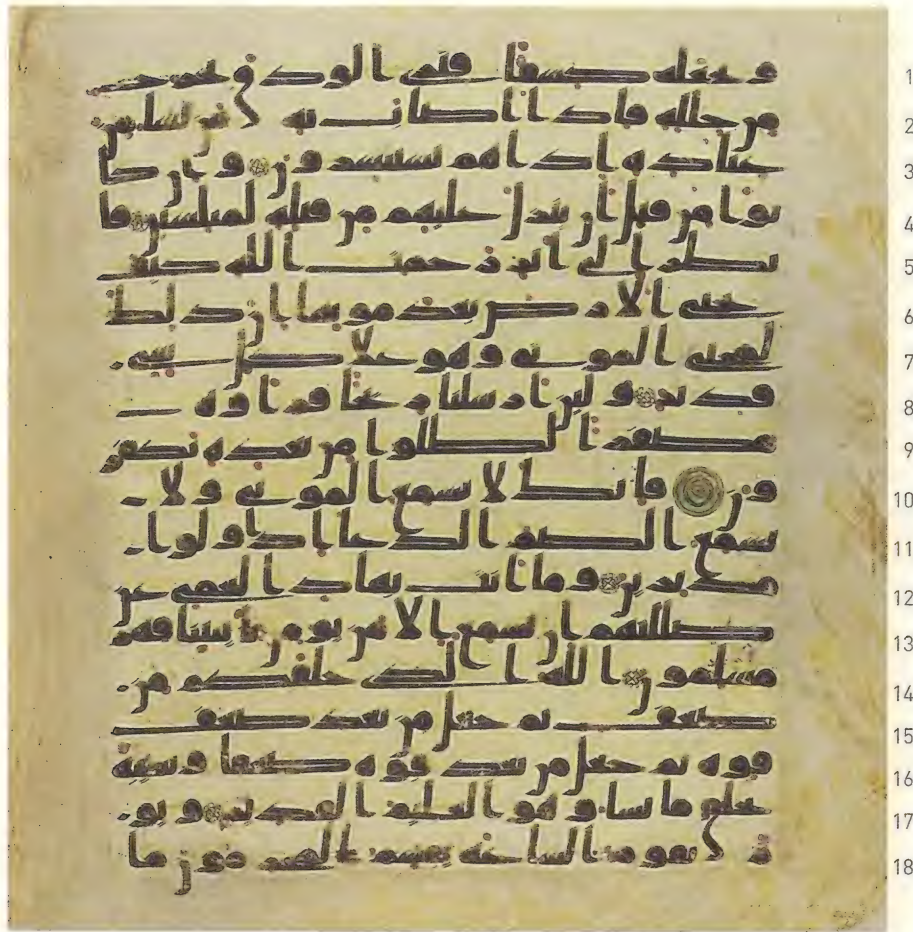 ويجعله كسفا فترى الودق يخرج 1
من خلله فاذا اصاب به من يشا من 2
عباده اذا هم يستبشرون وان كا 3
نوا من قبل ان ينزل عليهم من قبله لمبلسين فا 4
نظر الى اثر رحمت الله كيف 5
يحي الارض بعد موتها ان ذلك 6
لمحي الموتى وهو على كل شي 7
قدير ولئن ارسلنا ريحا فراوه 8
مصفرا لظلوا من بعده يكفر 9
ون فانك لا تسمع الموتى ولا 10
تسمع الصم الدعا اذا ولوا 11
مدبرين وما انت بهاد العمي عن 12
ضللتهم ان تسمع الا من يومن بايتنا فهم 13
مسلمون الله الذي خلقكم من 14
ضعف ثم جعل من بعد ضعف 15
قوة ثم جعل من بعد قوة ضعفا وشيبة 16
يخلق ما يشا وهو العليم القدير ويو 17
م تقوم الساعة يقسم المجرمون ما 18